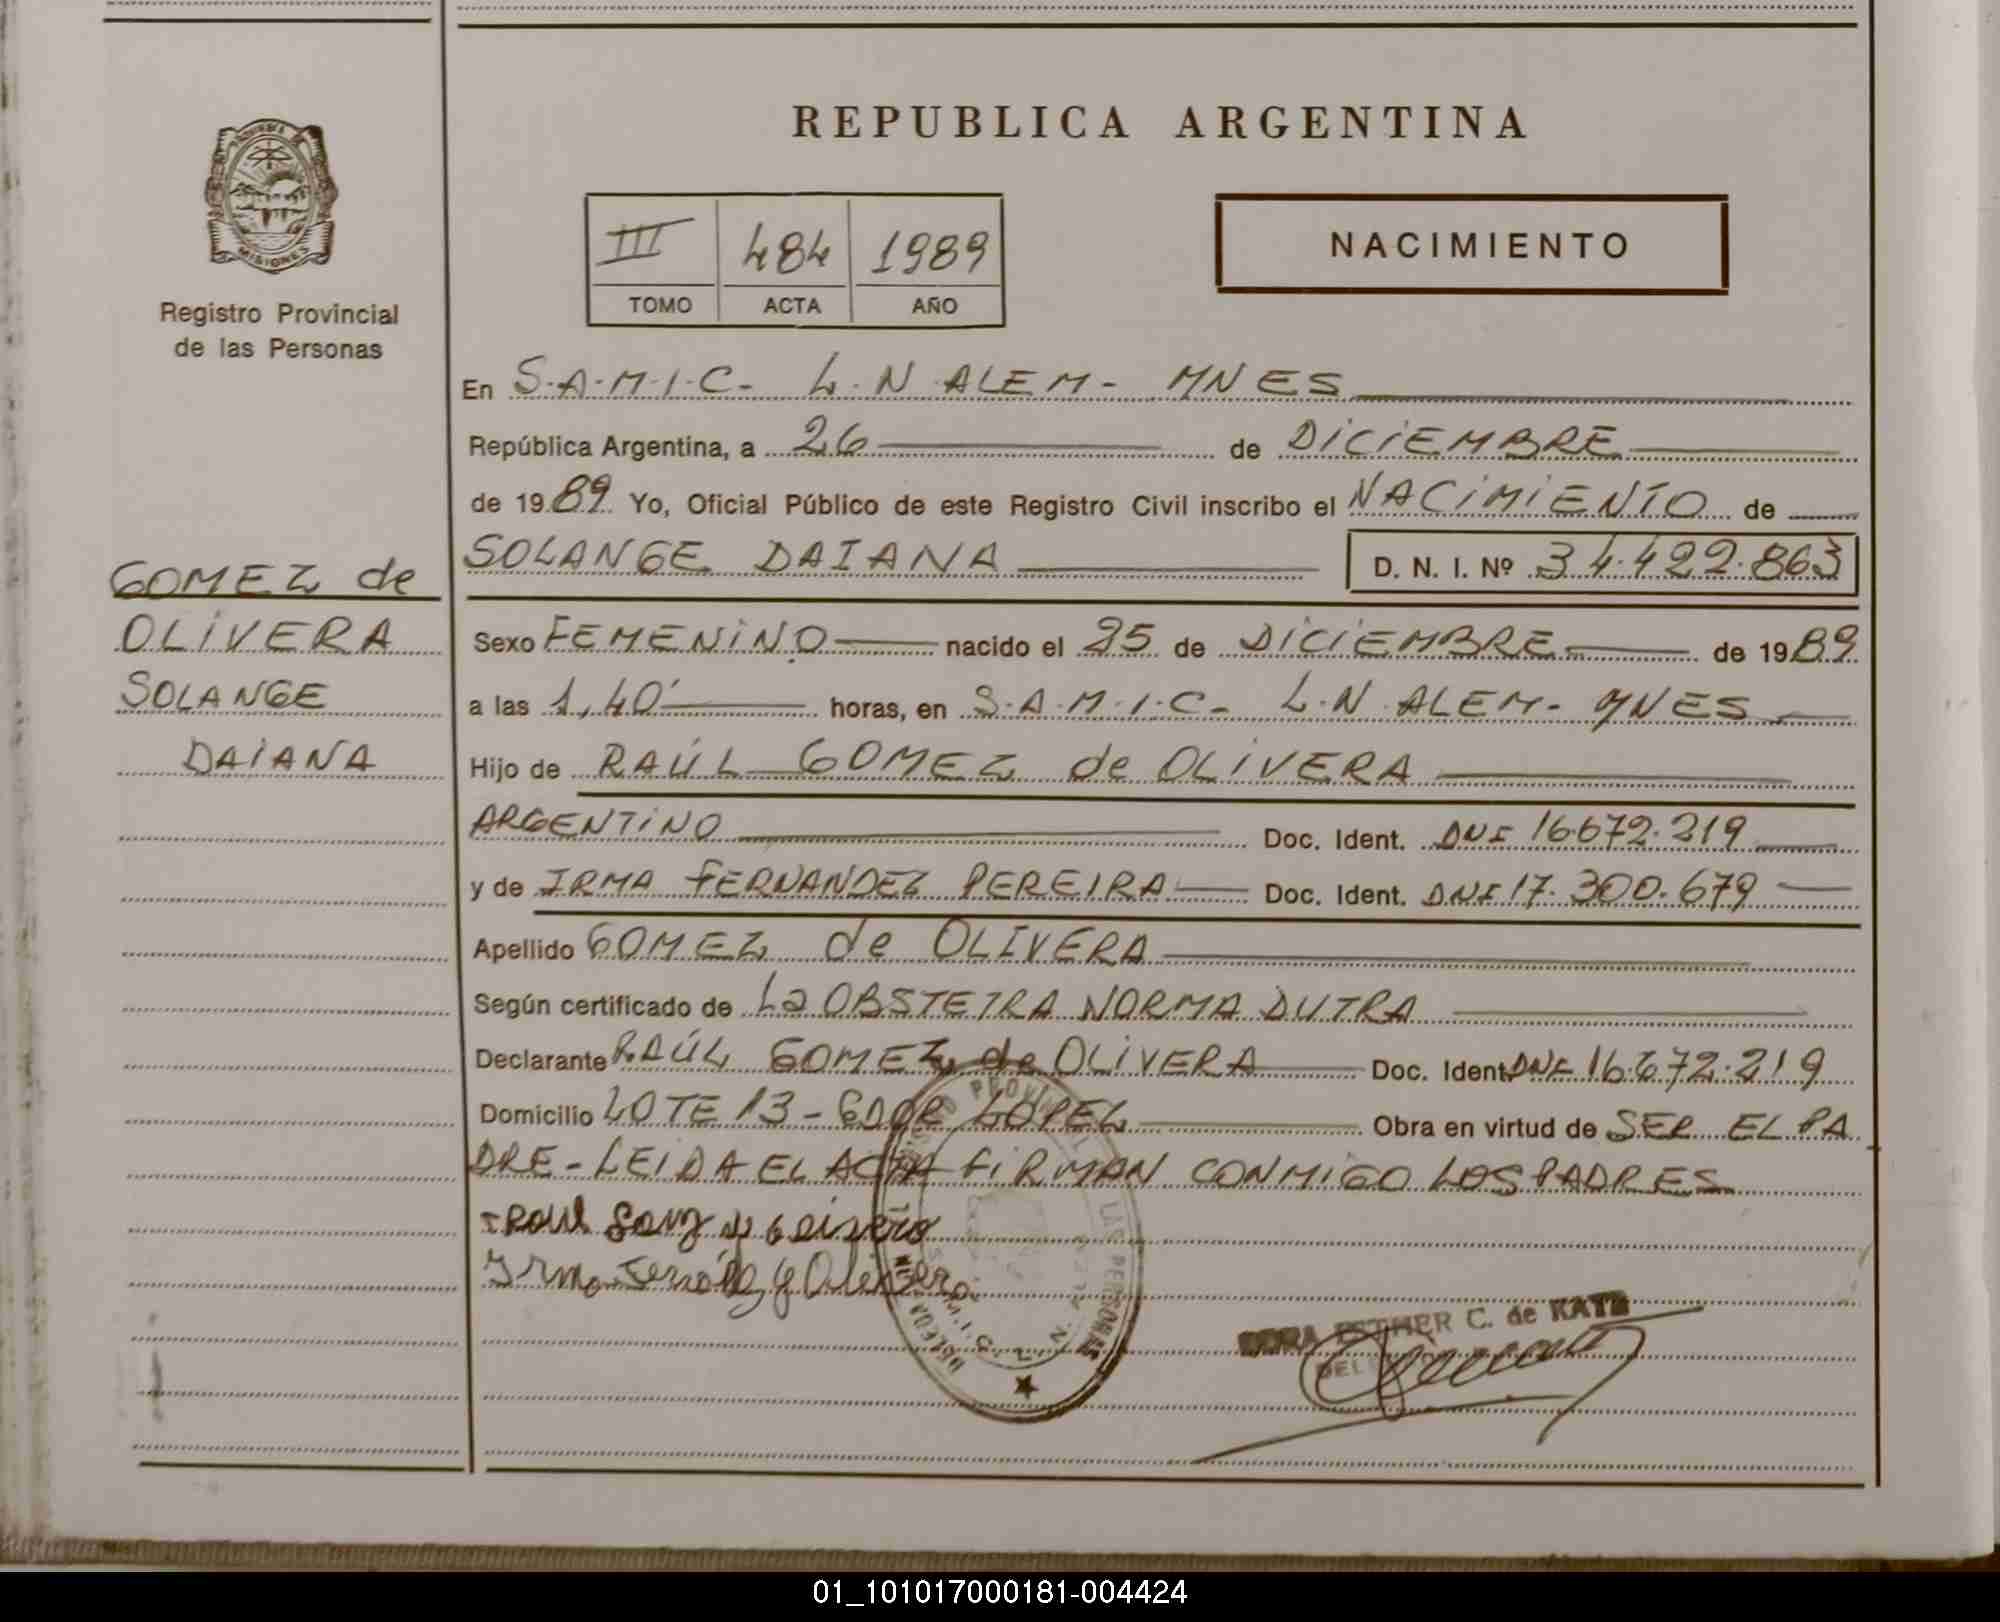 REPUBLICA ARGENTINA
MISIONES
Registro Provincial
de las Personas
III 484 1989
TOMO ACTA AÑO
NACIMIENTO
En S.A.M.I.C- L.N ALEM- MNES
República Argentina, a 26 de DICIEMBRE
de 1989 Yo, Oficial Público de este Registro Civil inscribo el NACIMIENTO de
SOLANGE DAIANA D. N. I. Nº 34.422.863
GOMEZ de
OLIVERA
SOLANGE
DAIANA
Sexo FEMENINO nacido el 25 de DICIEMBRE de 1989
a las 1,40 horas, en S.A.M.I.C- L.N ALEM- MNES
Hijo de RAÚL GOMEZ de OLIVERA
ARGENTINO Doc. Ident. DNI 16.672.219
y de IRMA FERNANDEZ PEREIRA Doc. Ident. DNI 17.300.679
Apellido GOMEZ de OLIVERA
Según certificado de La OBSTETRA NORMA DUTRA
Declarante RAÚL GOMEZ de OLIVERA Doc. Ident. DNI 16.672.219
Domicilio LOTE 13 - GDOR LOPEZ Obra en virtud de SER EL PA
DRE - LEIDA EL ACTA FIRMAN CONMIGO LOS PADRES
ESTHER C. de KATZ
01_101017000181-004424